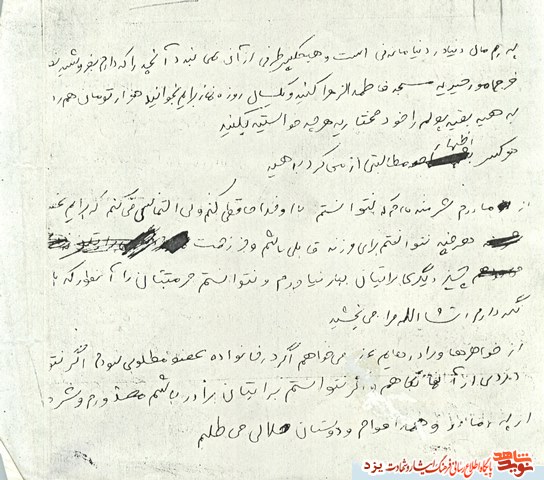 پدرم مال دنیا در دنیا ماندنی است و هیچکس طرفی از آن نمی بندد آنچه را که دارم بفروشید
خرج امور خیریه مسجد فاطمه الزهرا کنید و یکسال روزه نماز برایم بخوانید هزار تومان هم
به بقیه پولم را خود مختارید هرچه خواستید بکنید
هرکس اظهار مطالبتی از من کرد بدهید
از مادرم شرمنده ام که نتوانستم با او خداحافظی کنم ولی التماس می کنم که برایم
هرچند نتوانستم برای فرزند قابلی باشم و جز زحمت
چیز دیگری برایتان ببار نیاوردم و نتوانستم حرمتتان را آنطور که
نگه دارم انشاالله مرا می بخشید
از خواهرها و برادرهایم عذر می خواهم اگر در خانواده عضو مطلوبی نبودم اگر
از آنها نگاهم اگر نتوانستم برایتان برادر باشم معذورم و
از همه اقوام و دوستان حلالی می طلبم
نوید شاهد پایگاه اطلاع رسانی فرهنگ ایثار و شهادت یزد